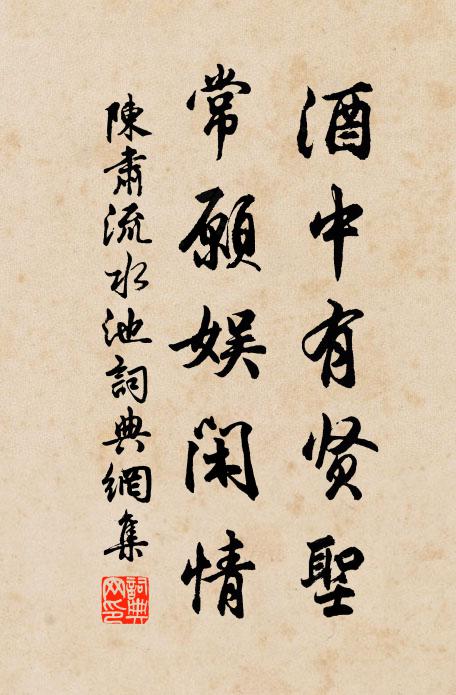 酒中有贤聖
常願娱闲情
陳肅流水池詞典網集
詞典網印